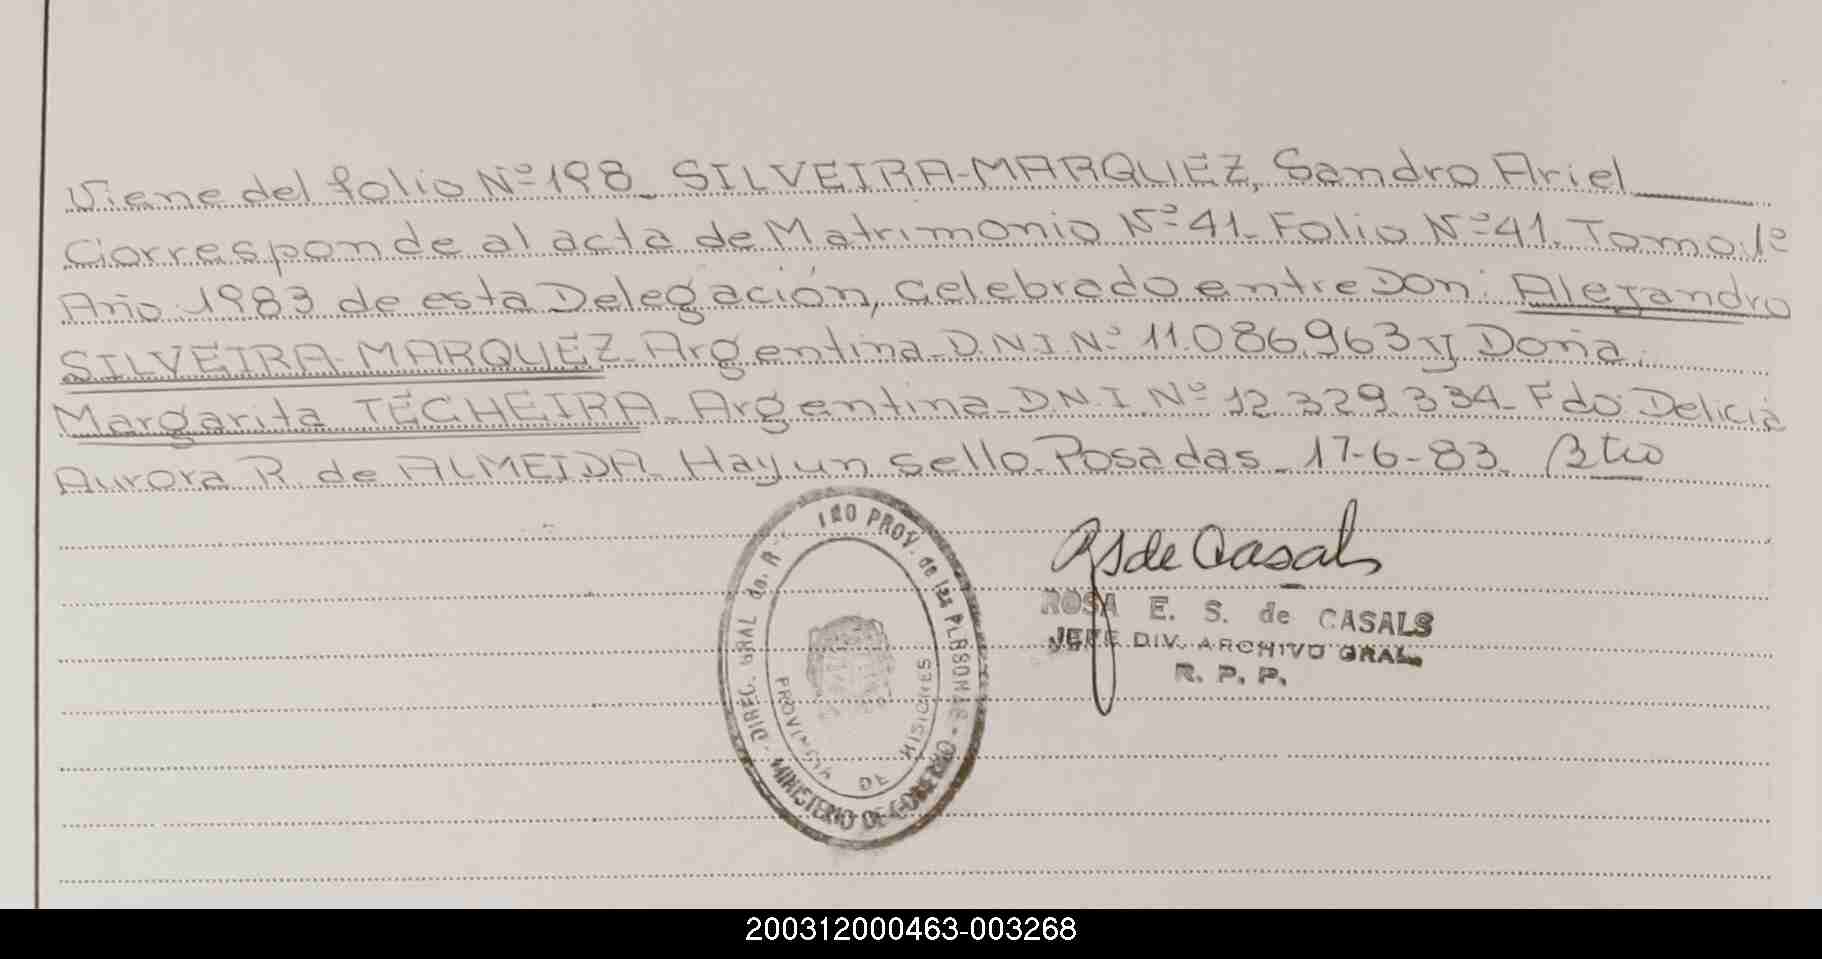 Viene del folio Nº 198_ SILVEIRA-MARQUEZ, Sandro Ariel
Corresponde al acta de Matrimonio Nº 41_ Folio Nº 41_ Tomo 1º
Año 1983 de esta Delegación, celebrado entre Don: Alejandro
SILVEIRA-MARQUEZ_ Argentina_ D.N.I. Nº 11.086.963 y Doña
Margarita TECHEIRA_ Argentina_ D.N.I. Nº 12.329.334_ Fdo: Delicia
Aurora R. de ALMEIDA_ Hay un sello_ Posadas_ 17-6-83_
DIREC. GRAL do. R PROV. de las PERSONAS - MINISTERIO DE GOBIERNO -
PROVINCIA DE MISIONES
de Casals
ROSA E. S. de CASALS
JEFE DIV. ARCHIVO GRAL.
R. P. P.
200312000463-003268